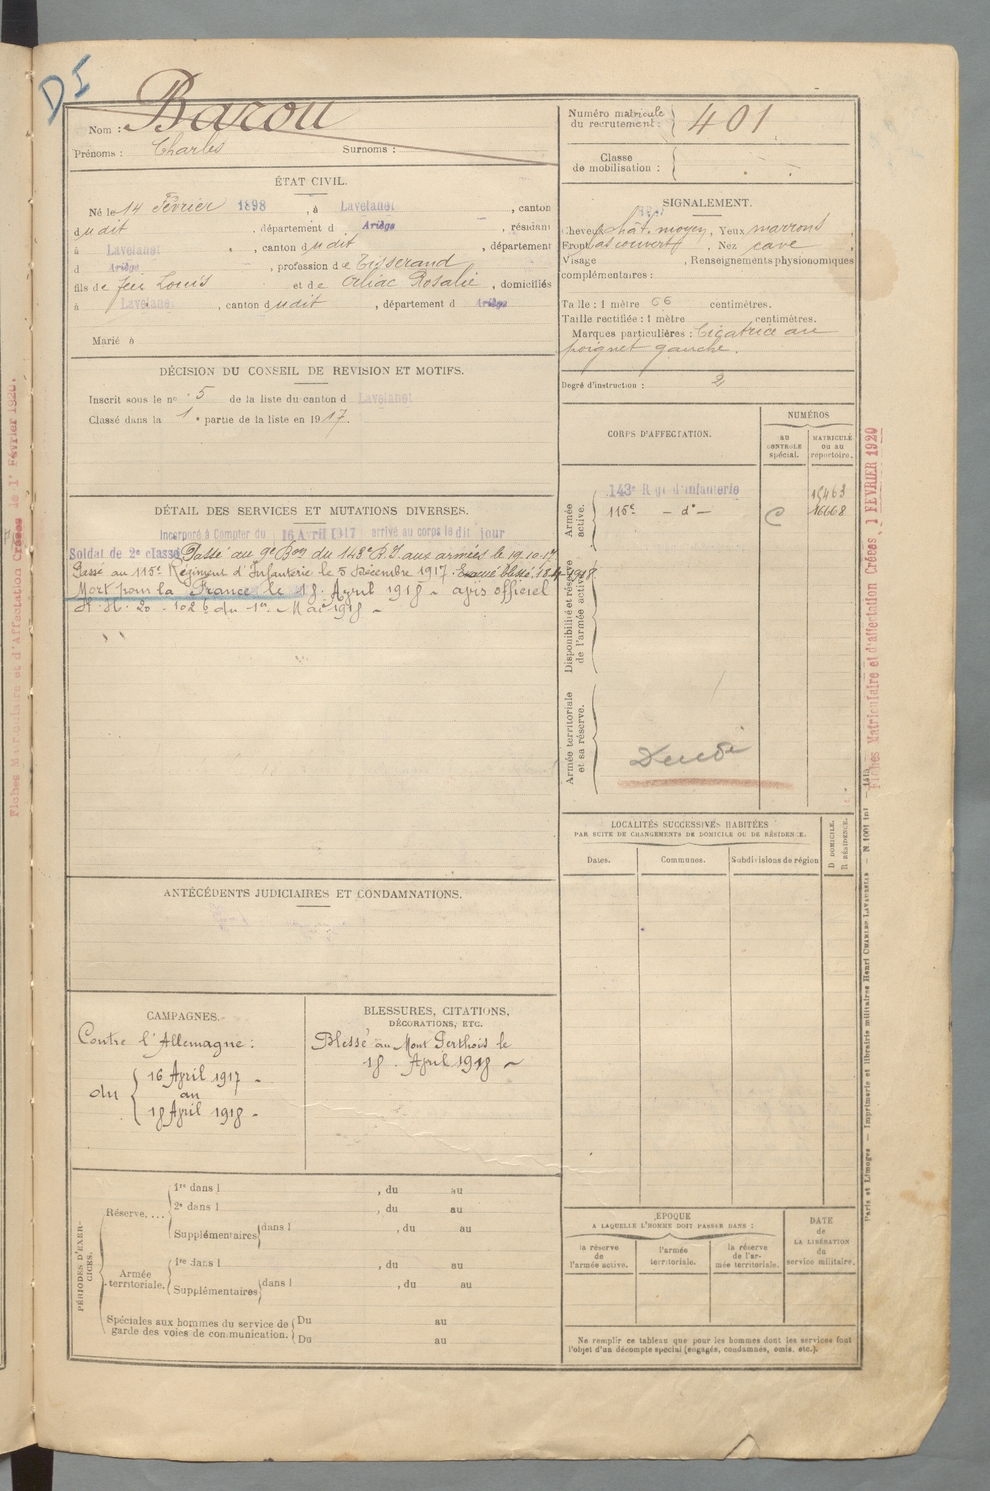 DI
Nom : Barou
Prénoms : Charles Surnoms :
Numéro matricule
du recrutement : 401
Classe
de mobilisation :
ÉTAT CIVIL.
Né le 14 Février 1898, à Lavelanet, canton
dudit, département d Ariège, résidant
à Lavelanet, canton dudit, département
d Ariège, profession de Tisserand
fils de feu Louis et de Orliac Rosalie, domiciliés
à Lavelanet, canton dudit, département d Ariège
Marié à
SIGNALEMENT.
Cheveux chât. moyen, Yeux marrons
Front bas couvert, Nez cave,
Visage , Renseignements physionomiques
complémentaires :
Taille : 1 mètre 66 centimètres.
Taille rectifiée : 1 mètre centimètres.
Marques particulières : Cicatrice au
poignet gauche.
Degré d'instruction : 2
DÉCISION DU CONSEIL DE REVISION ET MOTIFS.
Inscrit sous le nº 5 de la liste du canton d Lavelanet
Classé dans la 1e partie de la liste en 1917.
CORPS D'AFFECTATION.
NUMÉROS
AU
CONTROLE
spécial.
MATRICULE
ou au
répertoire.
Armée
active.
143e Rgt d'infanterie 15463
115e - do - C 16168
Disponibilité et réserve
de l'armée active.
Armée territoriale
et sa réserve.
Décédé
DÉTAIL DES SERVICES ET MUTATIONS DIVERSES.
Incorporé à Compter du 16 Avril 1917 arrivé au corps le dit jour
Soldat de 2e classe Passé au 9e Bon du 143e R.I. aux armées le 19.10.17
Passé au 115e Régiment d'Infanterie le 5 Décembre 1917. Evacué blessé 18.4.1918.
Mort pour la France le 18 April 1918 - avis officiel
du 1er Mai 1918 -
Fiches Matriculaire et d'affectation Créées 1 FEVRIER 1920
Fiches Matriculaire et d'Affectation Créées le 1r Février 1920.
LOCALITÉS SUCCESSIVES HABITÉES
PAR SUITE DE CHANGEMENTS DE DOMICILE OU DE RÉSIDENCE.
Dates. Communes. Subdivisions de région
D DOMICILE.
R RÉSIDENCE.
ANTÉCÉDENTS JUDICIAIRES ET CONDAMNATIONS.
CAMPAGNES.
Contre l'Allemagne :
du 16 April 1917 -
au
18 April 1918 -
BLESSURES, CITATIONS,
DÉCORATIONS, ETC.
Blessé au Mont Perthois le
18 April 1918 ~
PÉRIODES D'EXERCICES.
Réserve....
1re dans l , du au
2e dans l , du au
Supplémentaires dans l , du au
Armée
territoriale.
1re dans l , du au
Supplémentaires dans l , du au
Spéciales aux hommes du service de
garde des voies de communication.
Du au
Du au
EPOQUE
A LAQUELLE L'HOMME DOIT PASSER DANS :
la réserve
de
l'armée active.
l'armée
territoriale.
la réserve
de l'ar-
mée territoriale.
DATE
de
LA LIBÉRATION
du
service militaire.
Ne remplir ce tableau que pour les hommes dont les services font
l'objet d'un décompte spécial (engagés, condamnés, omis, etc.).
Paris et Limoges — Imprimerie et librairie militaires Henri CHARLES-LAVAUZELLE